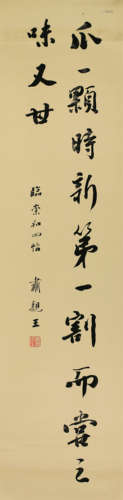 爪一顆時新第一割而嘗之
味又甘
臨崇和四帖
肅親王